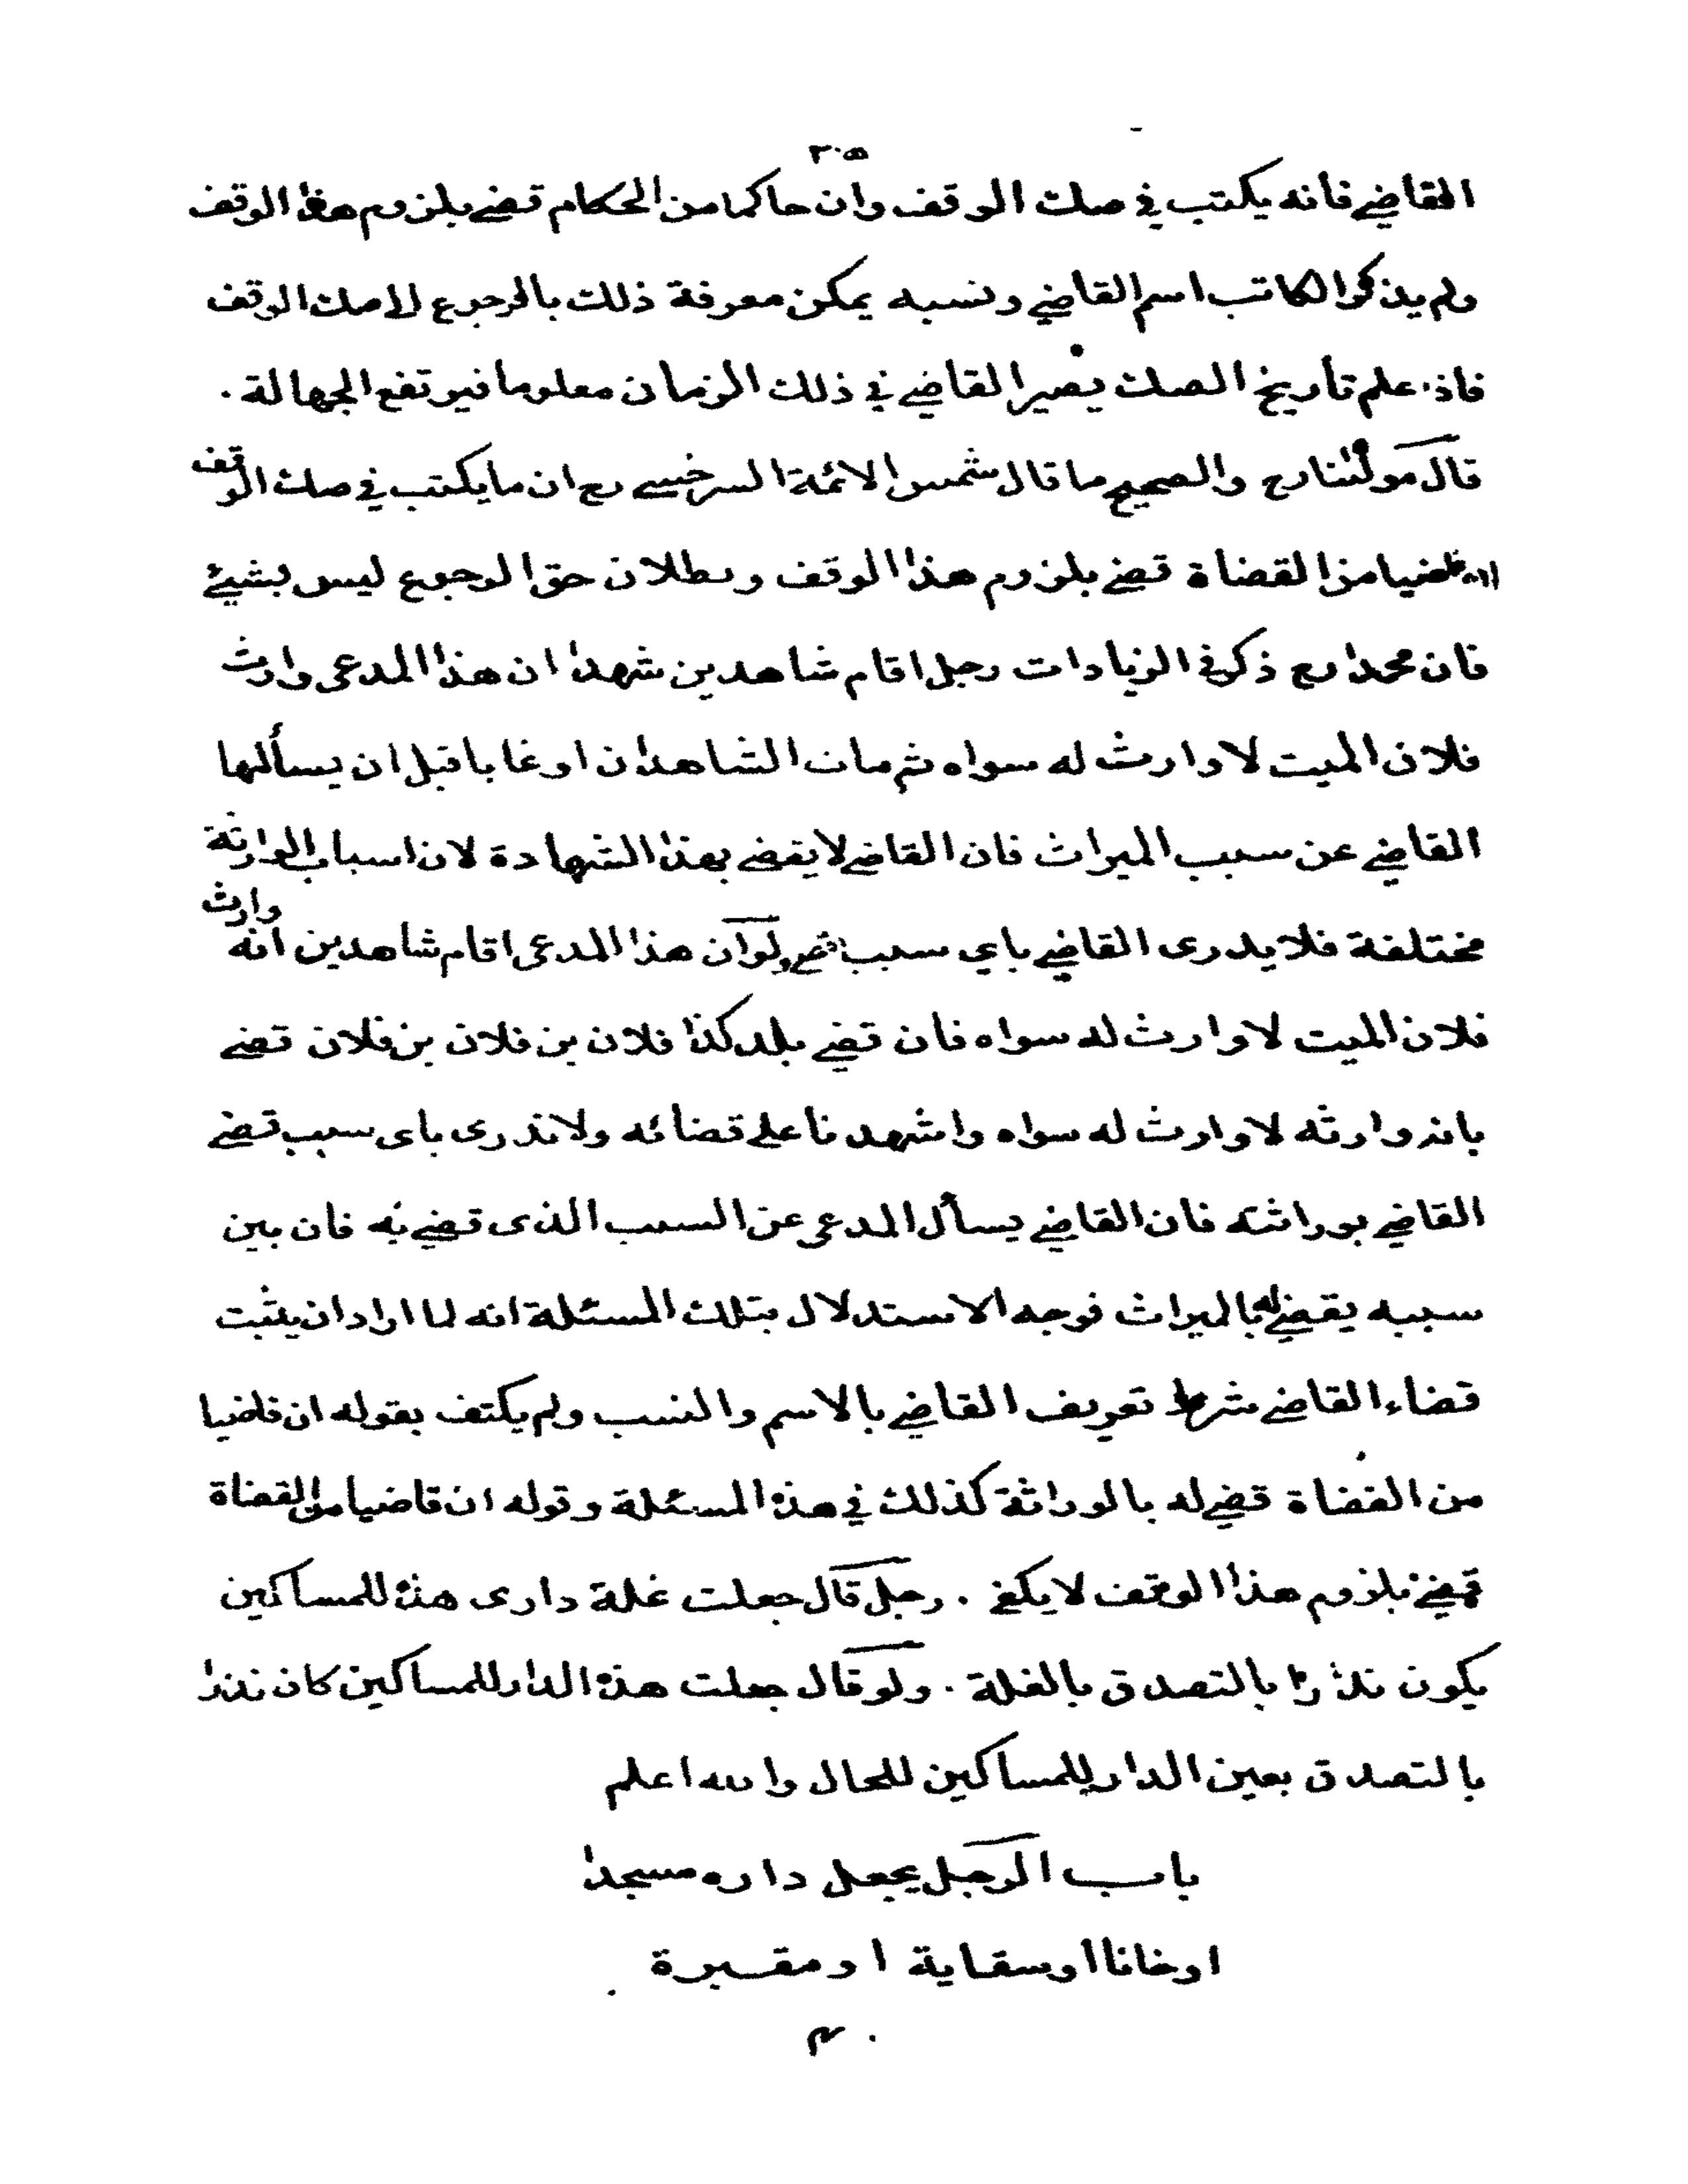 ٣٠٥
القاضي فانه يكتب في صك الوقف وان حاكما من الحكام قضى بلزوم هذا الوقف
ولم يذكر الكاتب اسم القاضي ونسبه يمكن معرفة ذلك بالرجوع الى صك الوقف
فاذا علم تأريخ الصك يصير القاضي في ذلك الزمان معلوما فيرتفع الجهالة .
قال مولٰنا رح والصحيح ما قال شمس الائمة السرخسي رح ان ما يكتب في صك الوقف
ان قاضيا من القضاة قضى بلزوم هذا الوقف وبطلان حق الرجوع ليس بشيئ
فان محمدا رح ذكر في الزيادات رجل اقام شاهدين شهدا ان هذا المدعى وارث
فلان الميت لا وارث له سواه ثم مات الشاهدان او غابا قبل ان يسألهما
القاضي عن سبب الميراث فان القاضى لا يقضى بهذا الشهادة لان اسباب الوراثة
مختلفة فلا يدرى القاضي باي سبب قضى ولو ان هذا المدعى اقام شاهدين انه وارث
فلان الميت لا وارث له سواه فان قضى بلد كذا فلان بن فلان بن فلان قضى
بانه وارثه لا وارث له سواه واشهدنا على قضائه ولا ندرى باى سبب قضى
القاضي بوراثته فان القاضي يسأل المدعى عن السبب الذى قضى به فان بين
سببه يقضى له بالميراث فوجه الاستدلال بتلك المسئلة انه لما اراد ان يثبت
قضاء القاضى شرط تعريف القاضي بالاسم والنسب ولم يكتف بقوله ان قاضيا
من القضاة قضى له بالوراثة كذلك في هذه المسئلة وقوله ان قاضيا من القضاة
قضى بلزوم هذا الوقف لا يكفى . رجل قال جعلت غلة دارى هذه للمساكين
يكون نذرا بالتصدق بالغلة . ولو قال جعلت هذه الدار للمساكين كان نذرا
بالتصدق بعين الدار للمساكين للحال والله اعلم
باب الرجل يجعل داره مسجدا
او خانا او سقاية او مقبرة